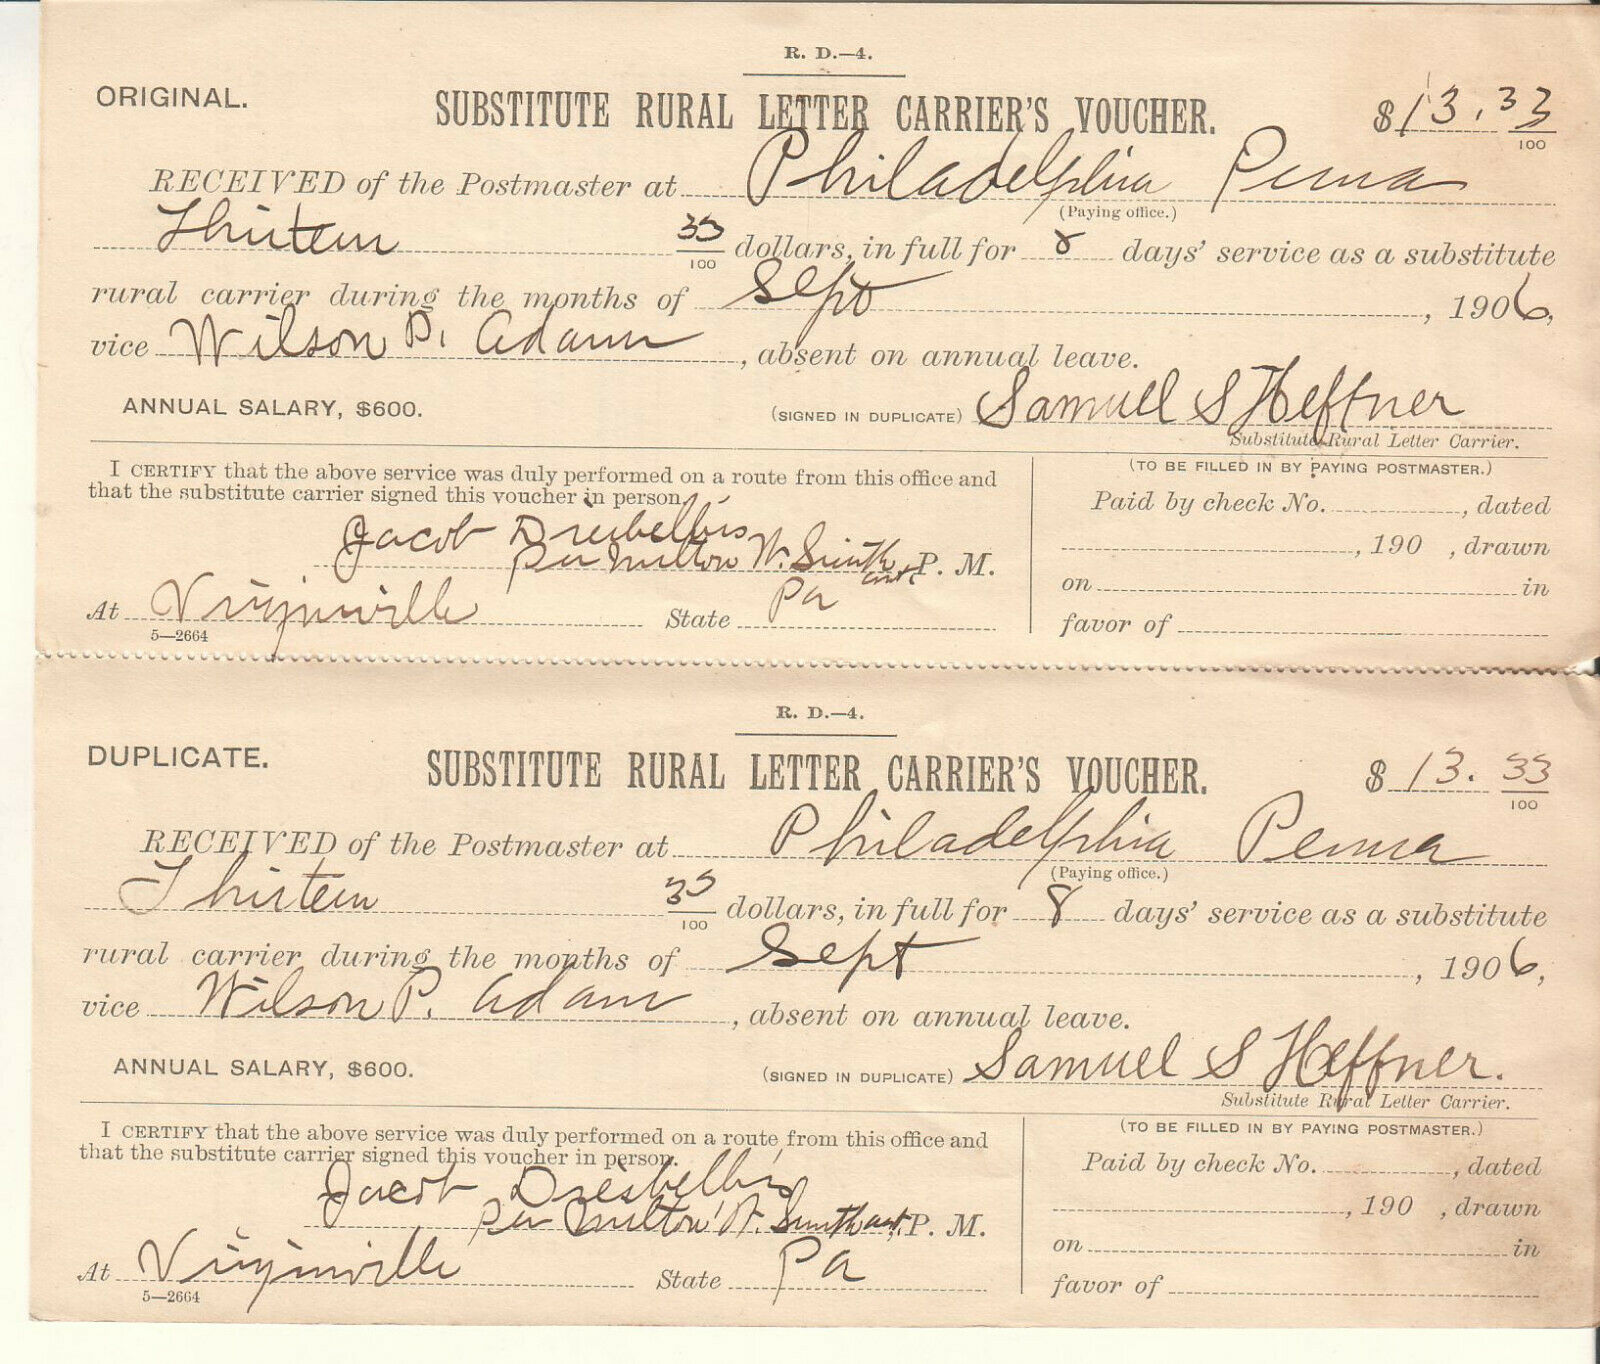 R. D.—4.
ORIGINAL. SUBSTITUTE RURAL LETTER CARRIER'S VOUCHER. $13.33/100
RECEIVED of the Postmaster at Philadelphia Penna
(Paying office.)
Thirteen 33/100 dollars, in full for 8 days' service as a substitute
rural carrier during the months of Sept, 1906,
vice Wilson P. Adam, absent on annual leave.
ANNUAL SALARY, $600. (SIGNED IN DUPLICATE) Samuel S Heffner
Substitute Rural Letter Carrier.
I CERTIFY that the above service was duly performed on a route from this office and
that the substitute carrier signed this voucher in person.
Jacob
per Milton W. Smith asst. P. M.
At Virginville State Pa
5—2664
(TO BE FILLED IN BY PAYING POSTMASTER.)
Paid by check No. , dated
, 190 , drawn
on in
favor of
R. D.—4.
DUPLICATE. SUBSTITUTE RURAL LETTER CARRIER'S VOUCHER. $13.33/100
RECEIVED of the Postmaster at Philadelphia Penna
(Paying office.)
Thirteen 33/100 dollars, in full for 8 days' service as a substitute
rural carrier during the months of Sept, 1906,
vice Wilson P. Adam, absent on annual leave.
ANNUAL SALARY, $600. (SIGNED IN DUPLICATE) Samuel S Heffner.
Substitute Rural Letter Carrier.
I CERTIFY that the above service was duly performed on a route from this office and
that the substitute carrier signed this voucher in person.
Jacob
per Milton W. Smith asst. P. M.
At Virginville State Pa
5—2664
(TO BE FILLED IN BY PAYING POSTMASTER.)
Paid by check No. , dated
, 190 , drawn
on in
favor of